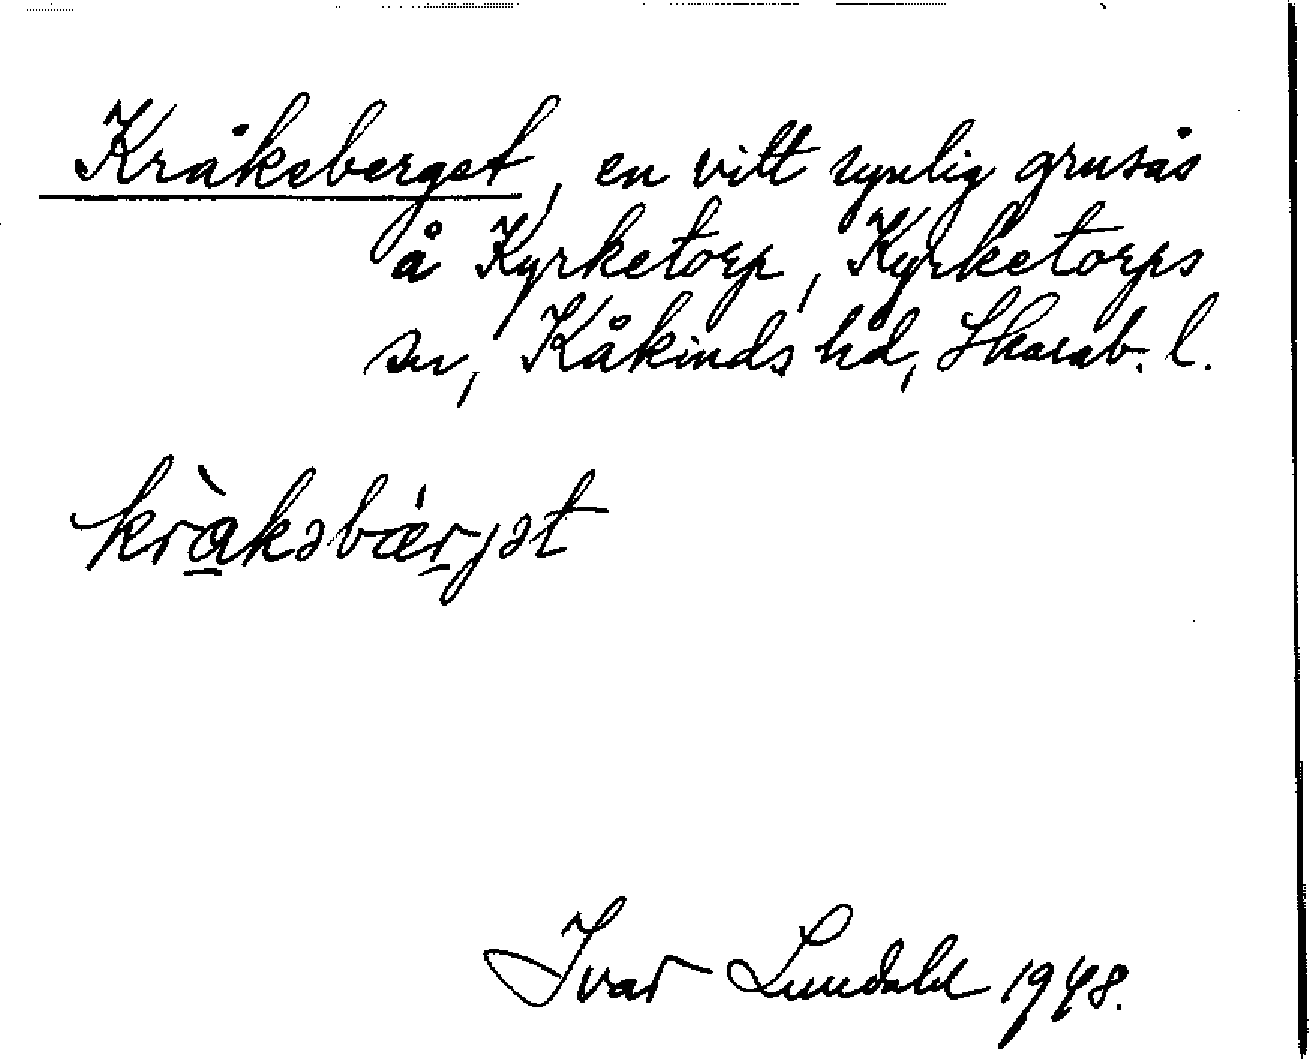 Kråkeberget, en vitt synlig grusås
å Kyrketorp, Kyrketorps
sn, Kåkinds hd, Skarab. l.
krà̱kəbæ̀ṟjət
Ivar Lundahl 1948.